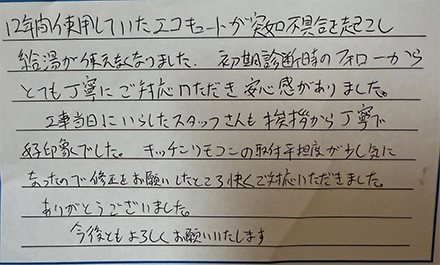 12年間使用していたエコキュートが突如不具合を起こし
給湯が使えなくなりました。初期診断時のフォローから
とても丁寧にご対応いただき安心感がありました。
工事当日にいらしたスタッフさんも挨拶から丁寧で
好印象でした。キッチンリモコンの取付平担度が少し気に
なったので修正をお願いしたところ快くご対応いただきました。
ありがとうございました。
今後ともよろしくお願いいたします